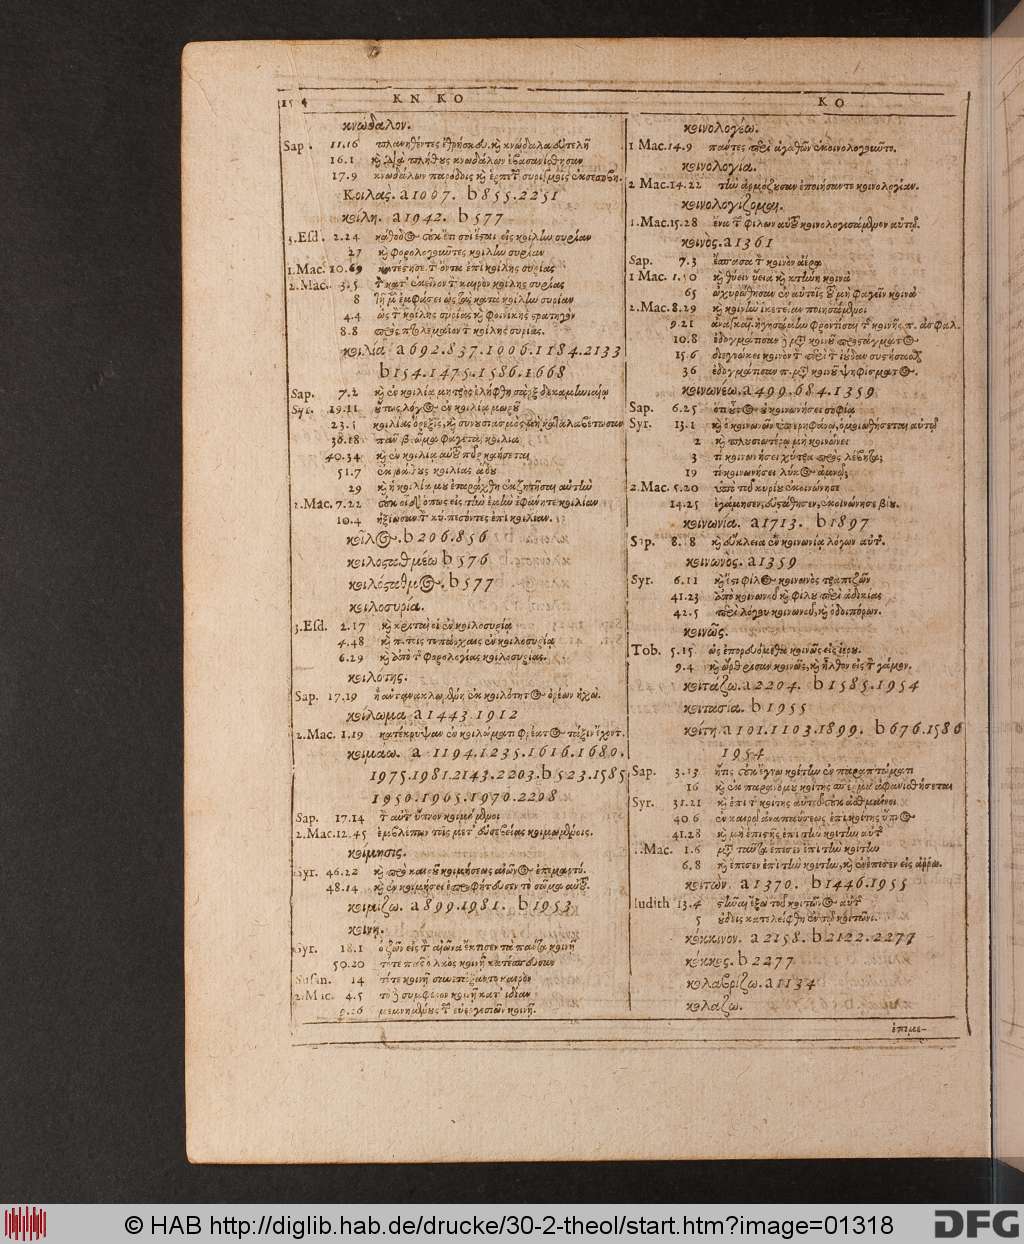 15
ΚΝ ΚΟ
ΚΟ
κνώδαλον.
Sap. 11.16 πλανηθέντες ἐθρήσκευον καὶ κνώδαλα εὐτελῆ
16.1 πλήθους κνωδάλων ἐβασανίσθησαν
17.9 κνωδάλων παρόδοις καὶ ἑρπετῶν συρισμοῖς
Κοιλας. a 1007. b 855.2251
κοίλη. a 1942. b 577
3.Esd. 2.24 εἰς κοίλην συρίαν
27 καὶ φορολογοῦντες κοίλην συρίαν
1.Mac. 10.69 τὸν ὄντα ἐπὶ κοίλης συρίας
2.Mac. 3.5 καιρὸν κοίλης συρίας
8 κατὰ κοίλην συρίαν
4.4 ὡς τῆς κοίλης συρίας καὶ φοινίκης στρατηγὸν
8.8 πρὸς πτολεμαῖον τῆς κοίλης συρίας.
κοιλία a 692.837.1006.1184.2133
b 154.1475.1586.1668
Sap. 7.2 καὶ ἐν κοιλίᾳ μητρὸς ἐγλύφθη σὰρξ δεκαμηνιαίῳ
Syr. 19.11 οὕτως λόγος ἐν κοιλίᾳ μωροῦ
23.5 κοιλίας ὄρεξις, καὶ συνουσιασμὸς μὴ καταλαβέτωσαν
36.18 πᾶν βρῶμα φάγεται κοιλία
40.34 καὶ ἐν κοιλίᾳ αὐτοῦ πῦρ καήσεται
51.7 ἐκ βάθους κοιλίας ᾅδου
29 καὶ ἡ κοιλία μου ἐταράχθη ἐκζητῆσαι αὐτὴν
2.Mac. 7.22 οὐκ οἶδ' ὅπως εἰς τὴν ἐμὴν ἐφάνητε κοιλίαν
10.4 ἠξίωσαν τὸν κύ. πεσόντες ἐπὶ κοιλίαν.
κοῖλος. b 206.856
κοιλοσταθμέω b 576
κοιλόσταθμος. b 577
κοιλοσυρία.
3.Esd. 2.17 καὶ κριταὶ οἱ ἐν κοιλοσυρίᾳ
4.48 καὶ πᾶσι τοπάρχαις ἐν κοιλοσυρίᾳ
6.29 καὶ ἀπὸ τῆς φορολογίας κοιλοσυρίας.
κοιλότης.
Sap. 17.19 ἢ ἀντανακλωμένη ἐκ κοιλότητος ὀρέων ἠχώ.
κοίλωμα a 1443.1912
2.Mac. 1.19 κατέκρυψαν ἐν κοιλώματι φρέατος τάξιν ἔχοντ.
κοιμάω. a 1194.1235.1616.1680.
1975.1981.2143.2203. b 523.1585
1950.1965.1970.2208
Sap. 17.14 τὸν αὐτὸν ὕπνον κοιμώμενοι
2.Mac. 12.45 ἐμβλέπων τοῖς μετ' εὐσεβείας κοιμωμένοις.
κοίμησις.
Syr. 46.22 καὶ πρὸ καιροῦ κοιμήσεως αἰῶνος ἐπεμαρτύ.
48.14 καὶ ἐν κοιμήσει ἐπροφήτευσεν τὸ σῶμα αὐτοῦ.
κοιμίζω. a 899.1981. b 1953
κοινῇ.
Syr. 18.1 ὁ ζῶν εἰς τὸν αἰῶνα ἔκτισεν τὰ πάντα κοινῇ
50.20 τότε πᾶς ὁ λαὸς κοινῇ κατέσπευσαν
Susan. 14 τότε κοινῇ συνετάξαντο καιρὸν
2.Mac. 4.5 τὸ συμφέρον κοινῇ κατ' ἰδίαν
9.26 μεμνημένους τῶν εὐεργεσιῶν κοινῇ.
κοινολογέω.
1 Mac. 14.9 πάντες περὶ ἀγαθῶν ἐκοινολογοῦντο.
κοινολογία.
2 Mac. 14.22 τὴν ἁρμόζουσαν ἐποιήσαντο κοινολογίαν.
κοινολογίζομαι.
1.Mac. 15.28 ἕνα τῶν φίλων αὐτοῦ κοινολογισάμενον αὐτῷ.
κοινός. a 1361
Sap. 7.3 ἔσπασα τὸν κοινὸν ἀέρα
1 Mac. 1.50 καὶ θύειν ὕεια καὶ κτήνη κοινὰ
65 ὠχυρώθησαν ἐν αὐτοῖς τοῦ μὴ φαγεῖν κοινὰ
2.Mac. 8.29 καὶ κοινὴν ἱκετείαν ποιησάμενοι
9.21 ἀναγκαῖον ἡγησάμην φροντίσαι τῆς κοινῆς π. ἀσφαλ.
10.8 ἐδογμάτισαν μετὰ κοινοῦ προστάγματος
15.6 διεγνώκει κοινὸν τῶν περὶ τὸν ἰούδαν συστήσασθαι
36 ἐδογμάτισαν π. μετὰ κοινοῦ ψηφίσματος.
κοινωνέω. a 499.684.1359
Sap. 6.25 ὅτι οὗτος οὐ κοινωνήσει σοφίᾳ
Syr. 13.1 καὶ ὁ κοινωνῶν ὑπερηφάνῳ, ὁμοιωθήσεται αὐτῷ
2 καὶ πλουσιωτέρῳ μὴ κοινώνει
3 τί κοινωνήσει χύτρα πρὸς λέβητα;
19 τί κοινωνήσει λύκος ἀμνῷ;
2.Mac. 5.20 ὑπὸ τοῦ κυρίου ἐκοινώνησε
14.25 ἐγάμησεν, εὐστάθησεν, ἐκοινώνησε βίου.
κοινωνία. a 1713. b 1897
Sap. 8.18 καὶ εὔκλεια ἐν κοινωνίᾳ λόγων αὐτῆς.
κοινωνός. a 1359
Syr. 6.11 καὶ ἔστι φίλος κοινωνὸς τραπεζῶν
41.23 ἀπὸ κοινωνοῦ καὶ φίλου περὶ ἀδικίας
42.5 περὶ λόγου κοινωνοῦ, καὶ ὁδοιπόρων.
κοινῶς.
Tob. 5.15 ὡς ἐπορευόμεθα κοινῶς εἰς ἱερου.
9.4 καὶ ὤρθρισαν κοινῶς, καὶ ἦλθον εἰς τὸν γάμον.
κοιτάζω. a 2204. b 1585.1954
κοιτασία. b 1955
κοίτη. a 101.1103.1899. b 676.1586
1954
Sap. 3.13 ἥτις οὐκ ἔγνω κοίτην ἐν παραπτώματι
16 καὶ ἐκ παρανόμου κοίτης σπέρμα ἀφανισθήσεται
Syr. 31.21 καὶ ἐπὶ τῆς κοίτης αὐτοῦ οὐκ ἀσθμαίνει
40.6 ἐν καιρῷ ἀναπαύσεως ἐπὶ κοίτης ὕπνος
41.28 καὶ μὴ ἐπιστῇς ἐπὶ τὴν κοίτην αὐτῆς
1.Mac. 1.6 μετὰ ταῦτα ἔπεσεν ἐπὶ τὴν κοίτην
6.8 καὶ ἔπεσεν ἐπὶ τὴν κοίτην, καὶ ἐνέπεσεν εἰς ἀρρω.
κοιτών. a 1370. b 1446.1955
Iudith 13.4 στῆναι ἔξω τοῦ κοιτῶνος αὐτῆς
5 οὐδεὶς κατελείφθη ἐν τῷ κοιτῶνι.
κόκκινον. a 2158. b 2122.2277
κόκκος. b 2277
κολαβρίζω. a 1134
κολάζω.
ἐπιμε-
© HAB http://diglib.hab.de/drucke/30-2-theol/start.htm?image=01318
DFG